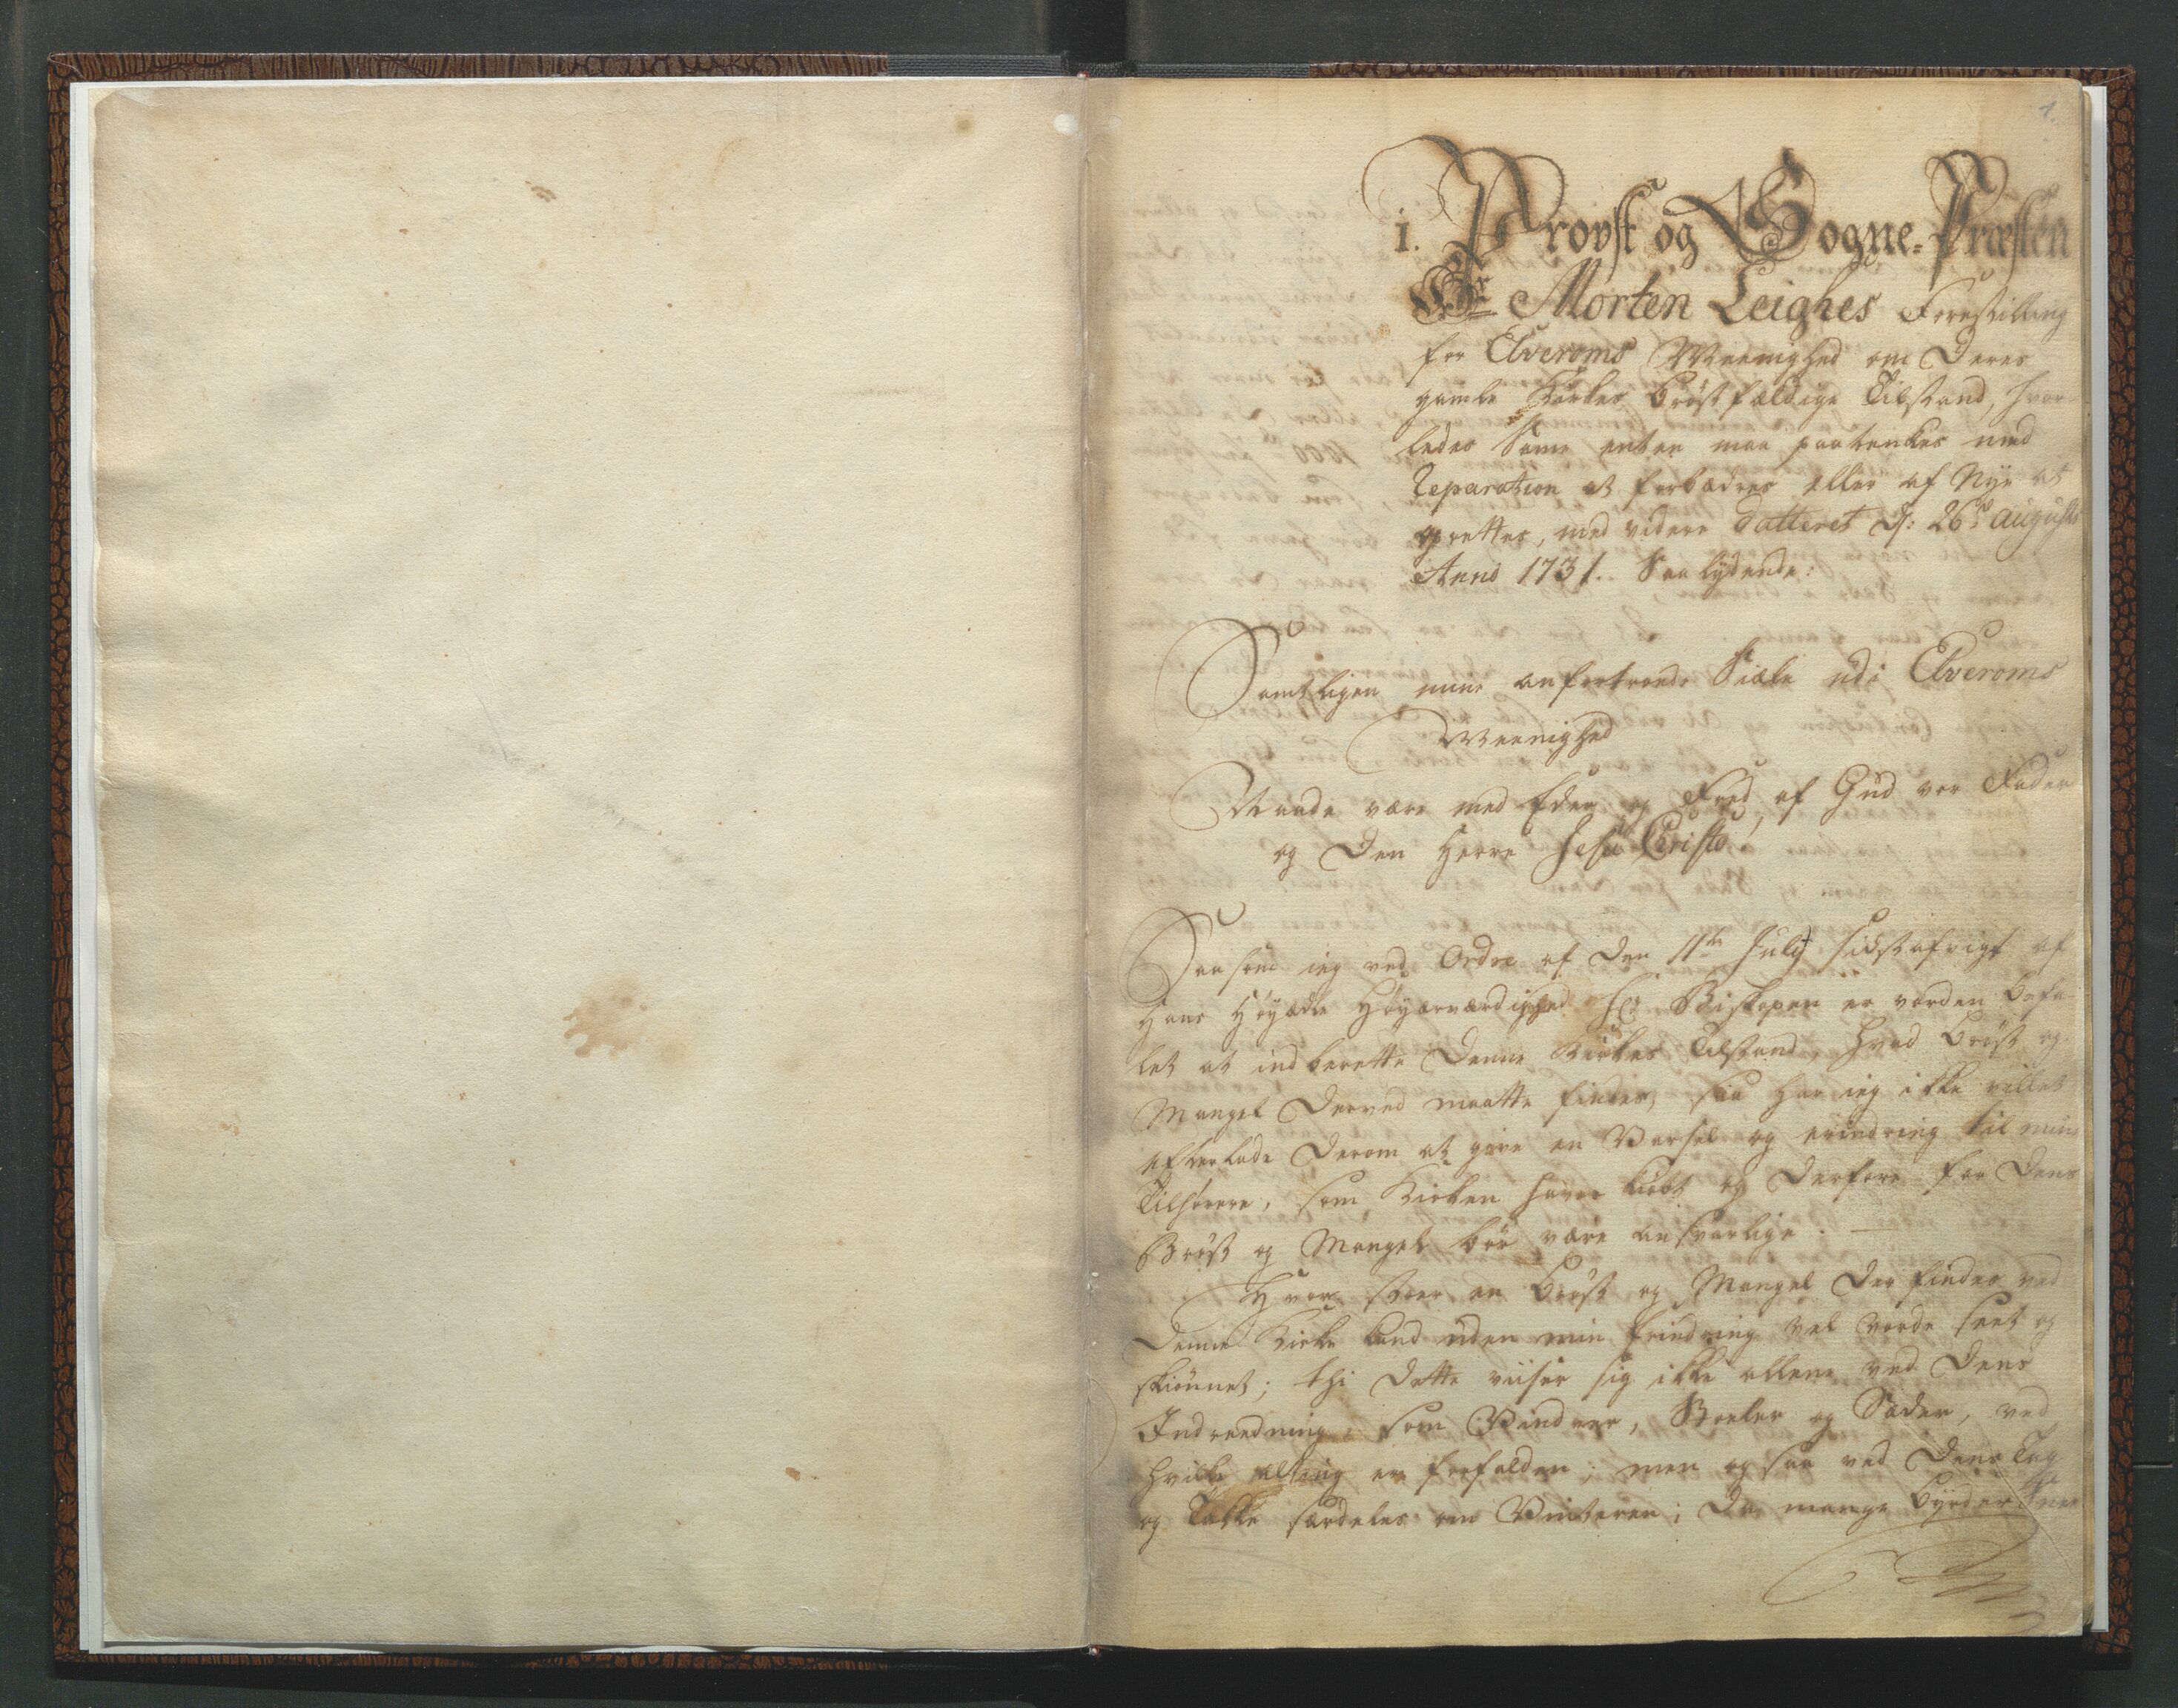 1.
1. Provst og Sogne-Præsten
Hr Morten Leighes Forestilling
for Elveroms Meenighed om Deres
gamle Kirkes Bröstfældige Tilstand, hvor-
ledes Samme enten maa paatenkes med
Reparation at forbædres eller af Nÿe at
oprettes, med videre datteret d: 26de Augusti
Anno 1731. Saa lÿdende:
Samtligen mine anfortroede Siæle udi Elveroms
Meenighed
Naade være med Eder og Fred, af Gud vor Fader
og den Herre Jesu Christo.
Saasom ieg ved Ordre af den 11te Julÿ sidstafvigt af
Hans Höÿædle Höÿærværdighed Hr Biskopen er vorden befa-
let at indberette denne Kirkes Tilstand, hvad bröst og
Mangel derved maatte findes, saa har ieg ikke villet
efterlade derom at give en Varsel og erindring til mine
Tilhörere, som Kirken haver kiöbt og derfore for dens
Bröst og Mangel bör være ansvarlige.
Hvor stoer en bröst og Mangel der findes ved
denne Kirke kand uden min Erindring vel vorde seet og
skiönnet; thi dette viiser sig ikke allene ved dens
Indreedning, som Vinduer, Stoeler og Sæder, ved
hvilke alting er forfalden; men og saa ved dens Tag
og Tække særdeles om Vinteren; da mange Byrder Snee